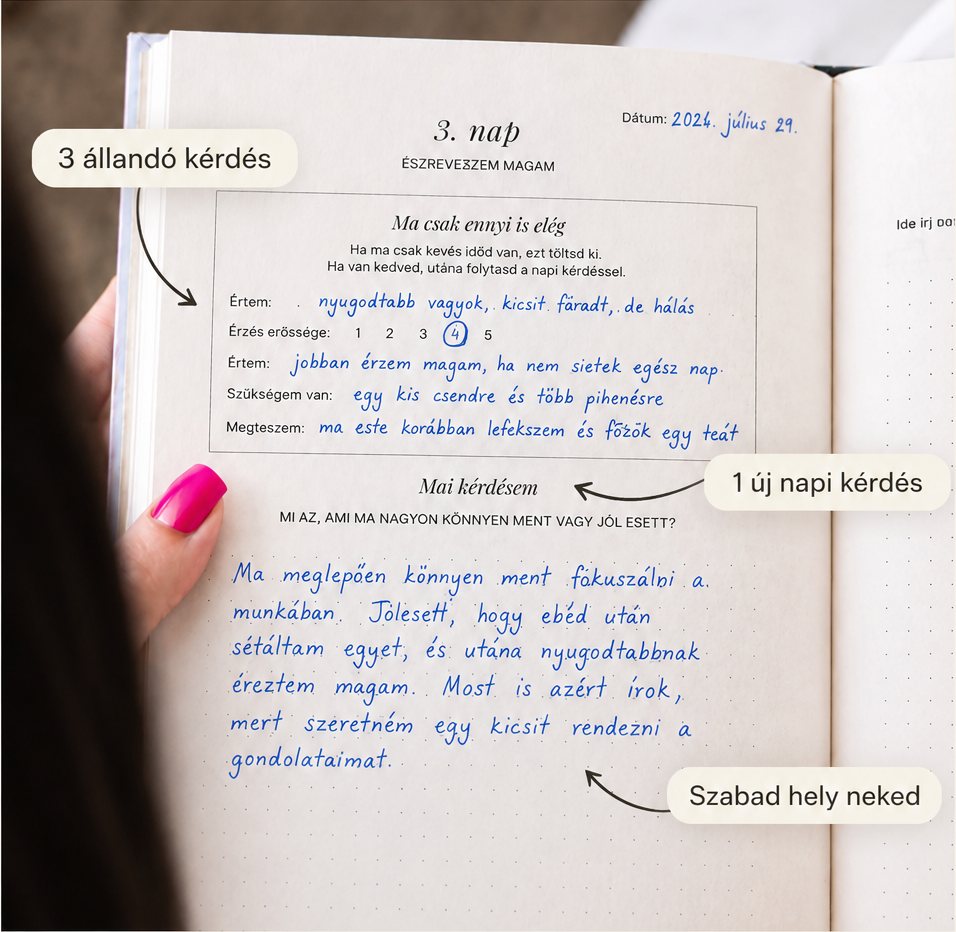 3. nap
Dátum: 2024. július 29.
ÉSZREVESZEM MAGAM
3 állandó kérdés
Ma csak ennyi is elég
Ha ma csak kevés időd van, ezt töltsd ki.
Ha van kedved, utána folytasd a napi kérdéssel.
Értem: nyugodtabb vagyok, kicsit fáradt, de hálás
Érzés erőssége: 1 2 3 4 5
Értem: jobban érzem magam, ha nem sietek egész nap.
Szükségem van: egy kis csendre és több pihenésre
Megteszem: ma este korábban lefekszem és főzök egy teát
Mai kérdésem
1 új napi kérdés
MI AZ, AMI MA NAGYON KÖNNYEN MENT VAGY JÓL ESETT?
Ma meglepően könnyen ment fókuszálni a
munkában. Jólesett, hogy ebéd után
sétáltam egyet, és utána nyugodtabbnak
éreztem magam. Most is azért írok,
mert szeretném egy kicsit rendezni a
gondolataimat.
Szabad hely neked
Ide írj